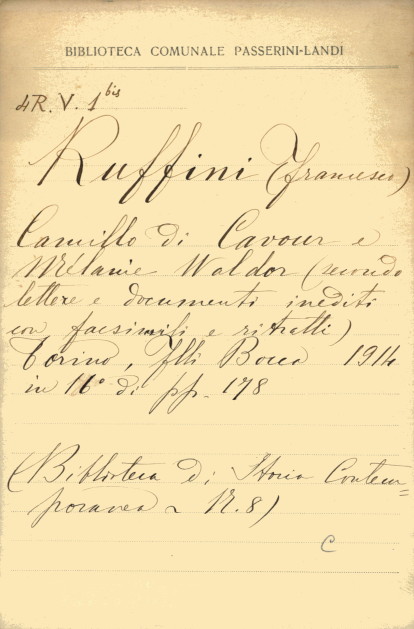 BIBLIOTECA COMUNALE PASSERINI-LANDI
4R. V. 1 bis
Ruffini (Francesco)
Camillo di Cavour e
Mélanie Waldor (secondo
lettere e documenti inediti
con facsimili e ritratti)
Torino, Flli Bocca 1914
in 16° di pp. 178
(Biblioteca di Storia Contem=
poranea ~ N. 8)
C